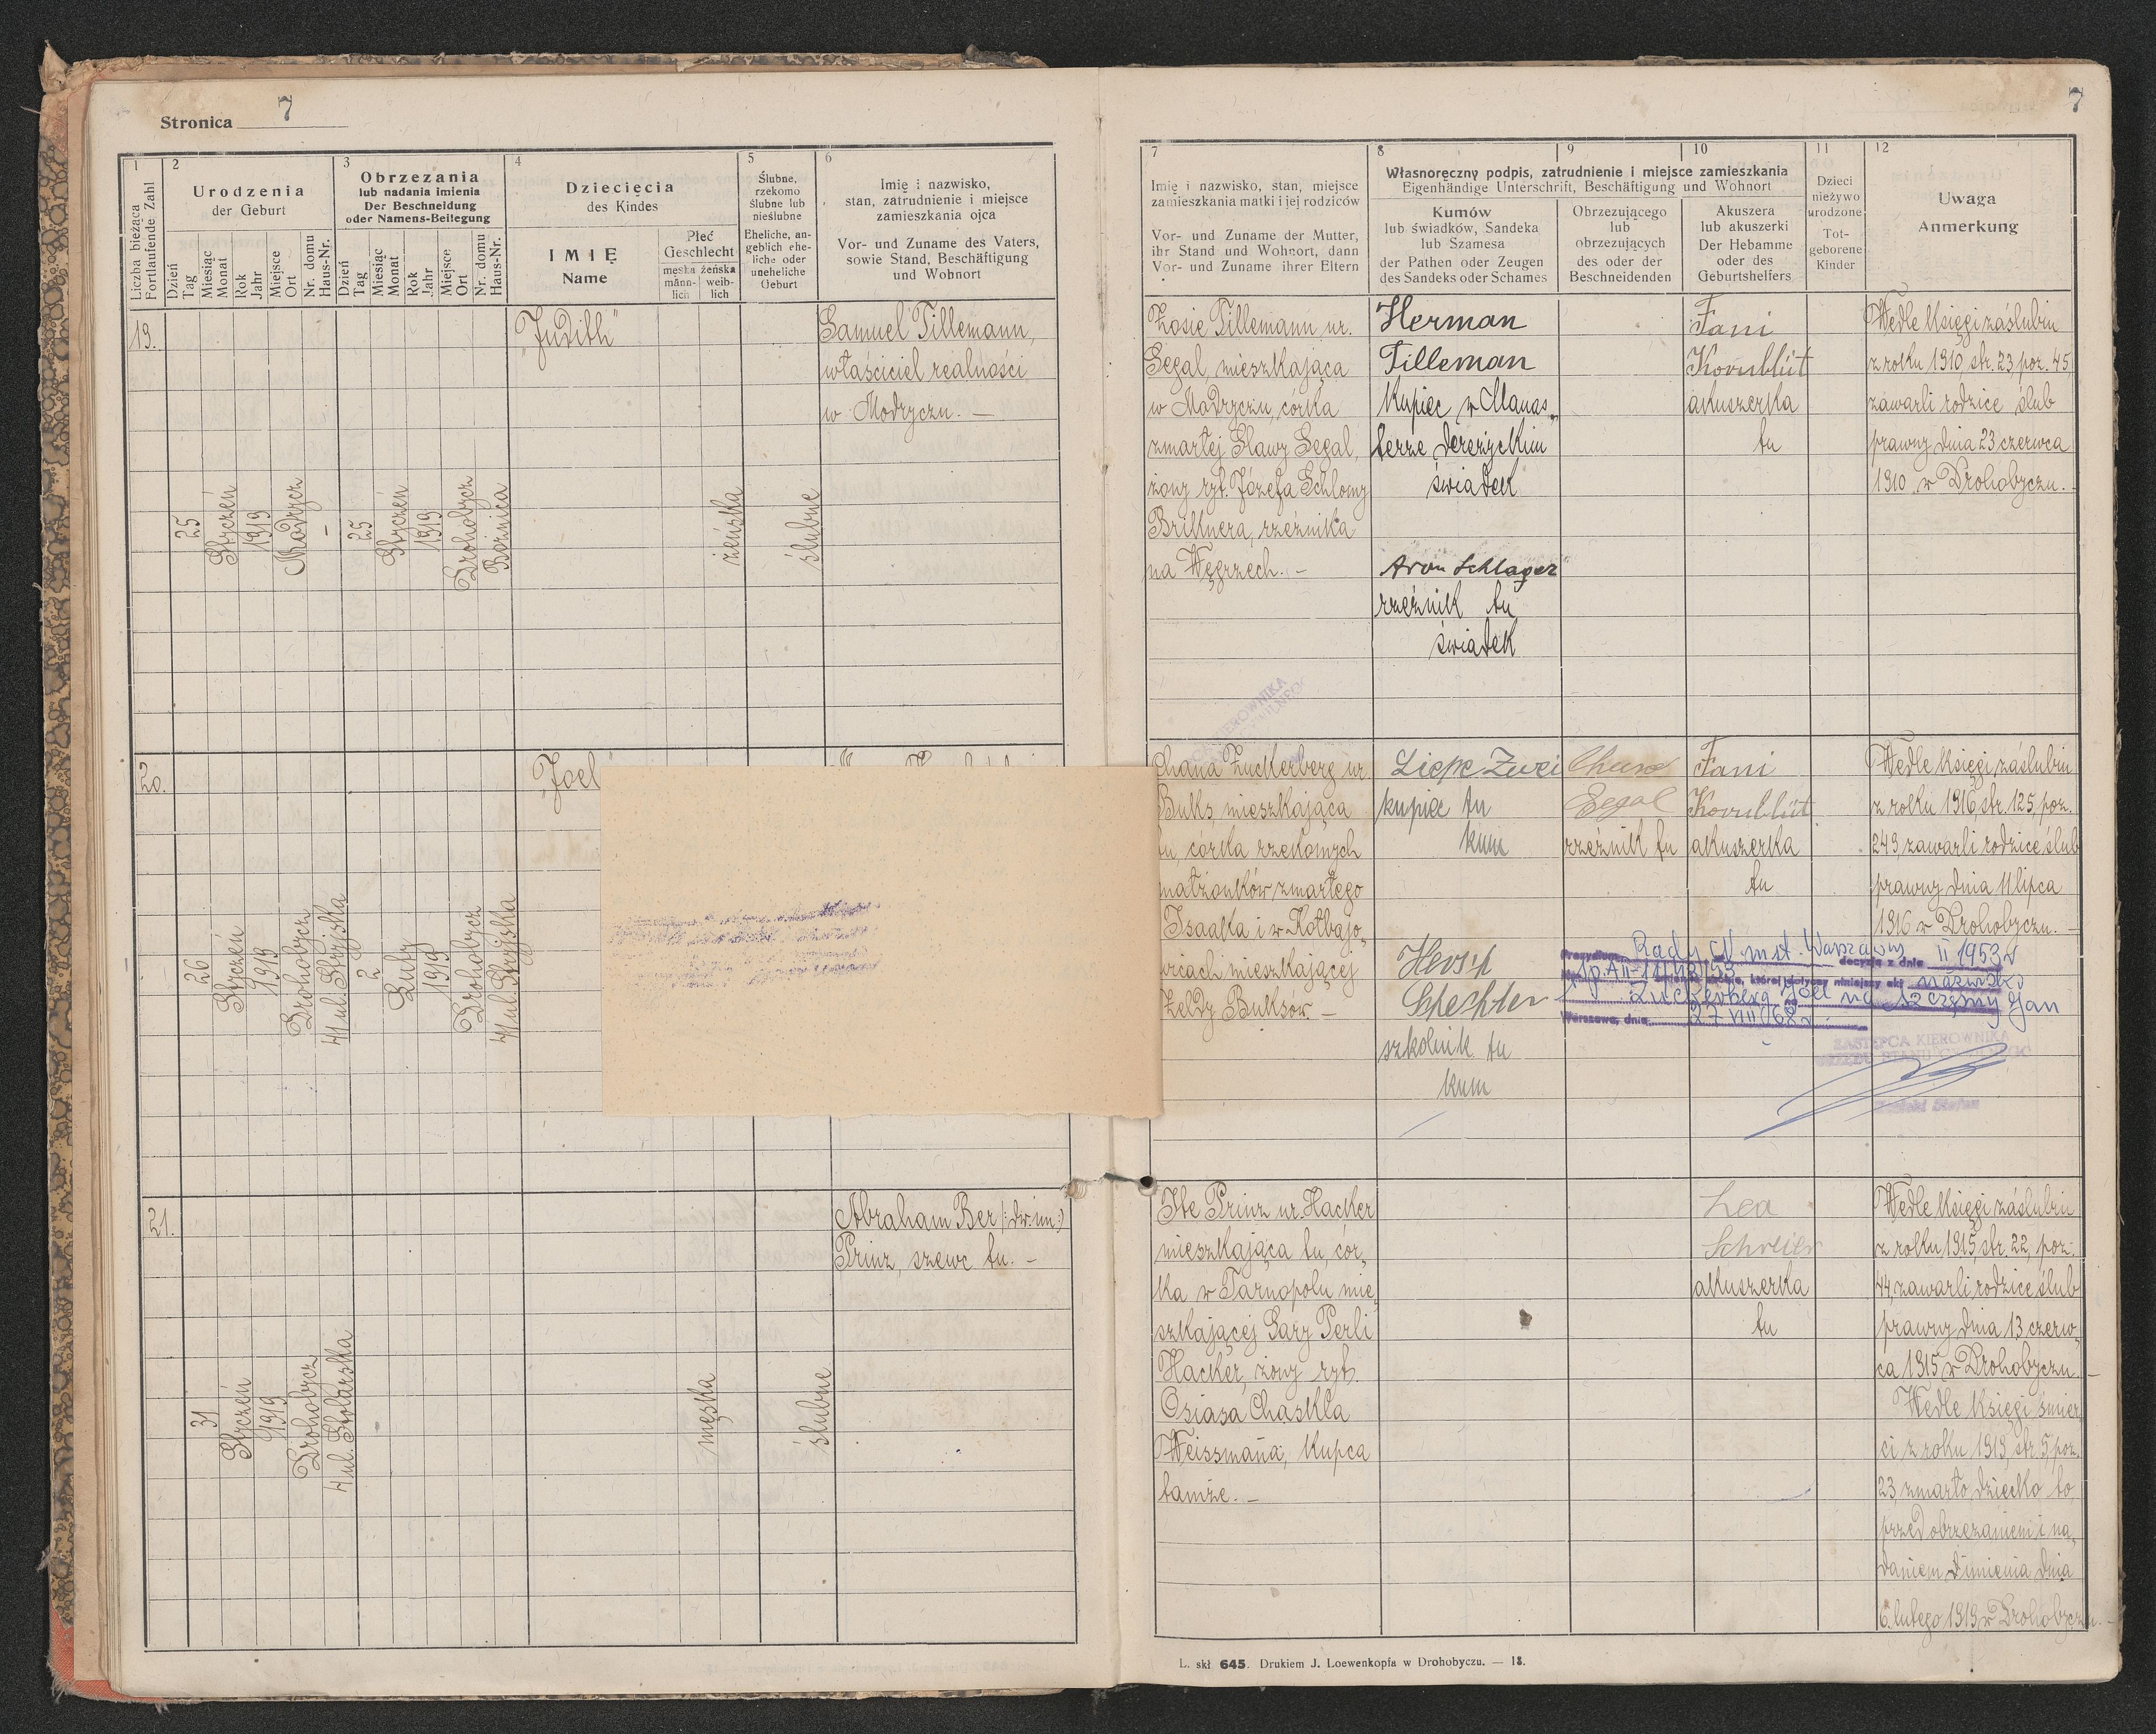 Stronica 7
7
1
2
3
4
5
6
Liczba bieżąca
Fortlaufende Zahl
Urodzenia
der Geburt
Obrzezania
lub nadania imienia
Der Beschneidung
oder Namens-Beilegung
Dziecięcia
des Kindes
Ślubne,
rzekomo
ślubne lub
nieślubne
Eheliche, an-
geblich ehe-
liche oder
uneheliche
Geburt
Imię i nazwisko,
stan, zatrudnienie i miejsce
zamieszkania ojca
Vor- und Zuname des Vaters,
sowie Stand, Beschäftigung
und Wohnort
Dzień
Tag
Miesiąc
Monat
Rok
Jahr
Miejsce
Ort
Nr. domu
Haus-Nr.
Dzień
Tag
Miesiąc
Monat
Rok
Jahr
Miejsce
Ort
Nr. domu
Haus-Nr.
IMIĘ
Name
Płeć
Geschlecht
męska
männ-
lich
żeńska
weib-
lich
7
8
9
10
11
12
Imię i nazwisko, stan, miejsce
zamieszkania matki i jej rodziców
Vor- und Zuname der Mutter,
ihr Stand und Wohnort, dann
Vor- und Zuname ihrer Eltern
Własnoręczny podpis, zatrudnienie i miejsce zamieszkania
Eigenhändige Unterschrift, Beschäftigung und Wohnort
Kumów
lub świadków, Sandeka
lub Szamesa
der Pathen oder Zeugen
des Sandeks oder Schames
Obrzezującego
lub
obrzezujących
des oder der
Beschneidenden
Akuszera
lub akuszerki
Der Hebamme
oder des
Geburtshelfers
Dzieci
nieżywo
urodzone
Tot-
geborene
Kinder
Uwaga
Anmerkung
19.
25
Styczeń
1919
Modrycz
-
25
Styczeń
1919
Drohobycz
Bożnica
"Judith"
żeńska
ślubne
Samuel Tillemann,
właściciel realności
w Modryczu. —
Zosie Tillemann ur.
Segal, mieszkająca
w Modryczu, córka
zmarłej Sławy Segal,
żony ryt. Józefa Schlomy
Briknera, rzeźnika
na Węgrzech. -
Herman
Tilleman
Kupiec w Manas„
terze dereżyckim
świadek
Aron Schlager
rzeźnik tu
świadek
Fani
Kornblüt
akuszerka
tu
Wedle Księgi zaślubin
z roku 1910, str. 23, poz. 45,
zawarli rodzice ślub
prawny dnia 23 czerwca
1910 w Drohobyczu. -
20.
26
Styczeń
1919
Drohobycz
4 ul. Stryjska
2
Luty
1919
Drohobycz
4 ul. Stryjska
"Joel"
Chana Zuckerberg ur.
Buks, mieszkająca
tu, córka rzekomych
małżonków zmarłego
Isaaka i w Hołbajo„
wicach mieszkającej
Zeldy Buksów. —
kupiec tu
kum
Hersch
Schechter
szkolnik tu
kum
Segal
rzeźnik tu
Fani
Kornblüt
akuszerka
tu
Wedle Księgi zaślubin
z roku 1916, str. 125, poz.
249 zawarli rodzice ślub
prawny dnia 11 lipca
1916 w Drohobyczu. —
Prezydium Rady N. m. st. Warszawy decyzją z dnia II 1953 r
której dotyczy niniejszy akt nazwisko
Zuckerberg Joel na Szczęsny Jan
Warszawa, dnia 27 VIII 68 r.
ZASTĘPCA KIEROWNIKA
URZĘDU STANU CYWILNEGO
Stefan
21.
31
Styczeń
1919
Drohobycz
4 ul. Stolarska
męska
ślubne
Abraham Ber /: dw. im :/
Prinz, szewc tu. -
Ite Prinz ur. Hacker
mieszkająca tu, cór„
ka w Tarnopolu mie„
szkającej Sary Perli
Hacker, żony ryt.
Osiasa Chaskla
Weissmana, kupca
tamże. —
Lea
Schreier
akuszerka
tu
Wedle Księgi zaślubin
z roku 1915, str. 22, poz.
44, zawarli rodzice ślub
prawny dnia 13 czerw„
ca 1915 w Drohobyczu. —
Wedle Księgi śmier„
ci z roku 1919, str. 5, poz.
23, zmarło dziecko to
przed obrzezaniem i na„
daniem imienia dnia
6. lutego 1919 w Drohobyczu. -
L. skł 645. Drukiem J. Loewenkopfa w Drohobyczu. — 18.